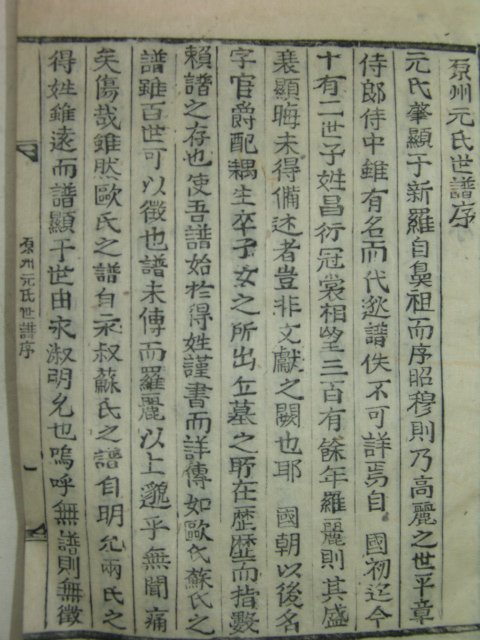 原州元氏世譜序
元氏肇顯于新羅自鼻祖而序昭穆則乃高麗之世平章
侍郎侍中雖有名而代逖譜佚不可詳焉自 國初迄今
十有二世子姓昌衍冠裳相望三百有餘年羅麗則其盛
衰顯晦未得備述者豈非文獻之闕也耶 國朝以後名
字官爵配耦生卒子女之所出丘墓之所在歷歷而指數
賴譜之存也使吾譜始於得姓謹書而詳傳如歐氏蘇氏之
譜雖百世可以徵也譜未傳而羅麗以上邈乎無聞痛
矣傷哉雖然歐氏之譜自永叔蘇氏之譜自明允兩氏之
得姓雖遠而譜顯于世由永淑明允也嗚呼無譜則無徵
原州元氏世譜序
一